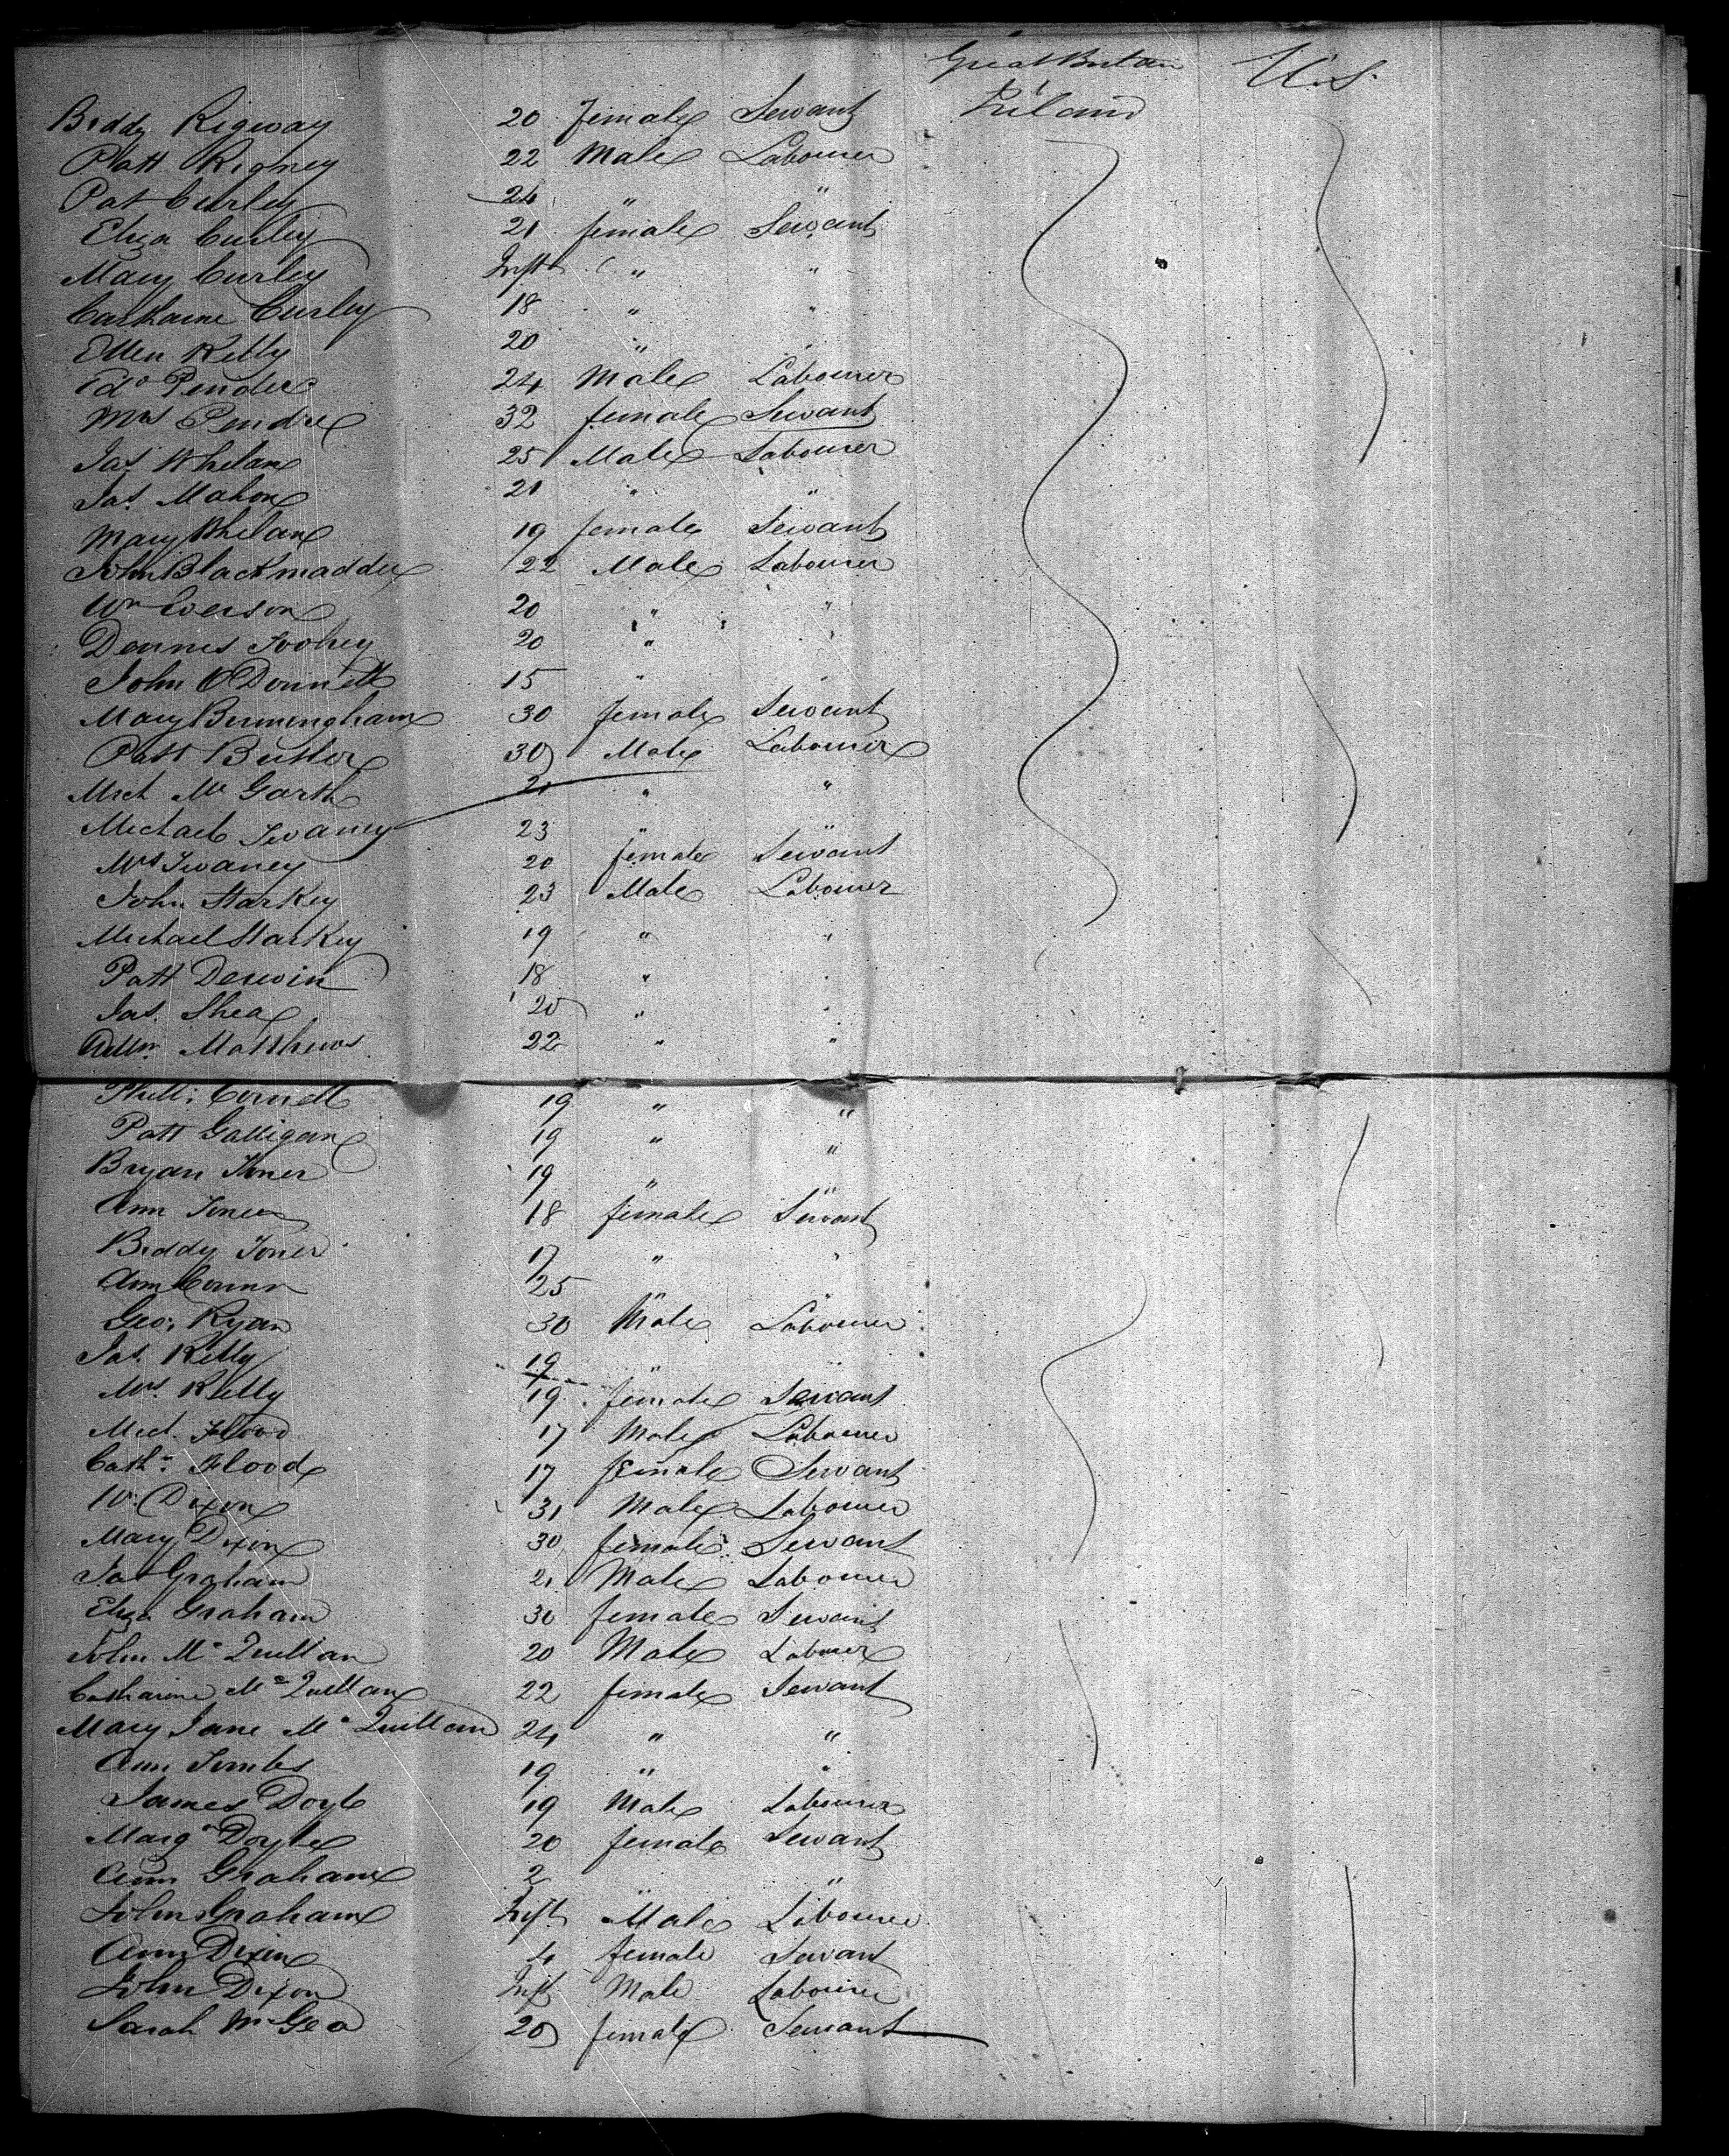 Great Britain U.S.
Biddy Rigway 20 female Servant Ireland
Patt Rigney 22 Male Labourer
Pat Curley 24 " "
Eliza Curley 21 female Servant
Mary Curley Inft " "
Catharine Curley 18 " "
Ellen Kelly 20 "
Edd Pender 24 Male Labourer
Mrs Pender 32 female Servant
Jas Whelan 25 Male Labourer
Jas. Mahon 21 " "
Mary Whelan 19 female Servant
John Blackmadder 22 Male Labourer
Wm Everson 20 " "
Dennis Toohey 20 "
John O'Donnell 15 "
Mary Birmingham 30 female Servant
Patt Butler 30 Male Labourer
Mich Mc Garth 21 " "
Michael Twaney 23 " "
Mrs Twaney 20 female Servant
John Starkey 23 Male Labourer
Michael Starkey 19 " "
Patt Derwin 18 "
Jas. Shea 20 " "
Matthews 22 " "
Phill: Connell 19 " "
Patt Galligan 19 " "
Bryan Toner 19 " "
Ann Toner 18 female Servant
Biddy Toner 17 " "
Ann Connor 25 " "
Geo: Ryan 30 Male Labourer
Jas. Kelly 19 " "
Mrs. Kelly 19 female Servant
Mic. Flood 17 Male Labourer
Cath: Flood 17 female Servant
W: Dixon 31 Male Labourer
Mary Dixon 30 female Servant
Jas Graham 21 Male Labourer
Eliza Graham 30 female Servant
John Mc Quillan 20 Male Labourer
Catharine Mc Quillan 22 female Servant
Mary Jane Mc Quillan 24 " "
Ann 19 " "
James Doyle 19 Male Labourer
Margt Doyle 20 female Servant
Ann Graham 2 " "
John Graham Inft Male Labourer
Ann Dixon 4 female Servant
John Dixon Inft Male Labourer
Sarah McGea 20 female Servant